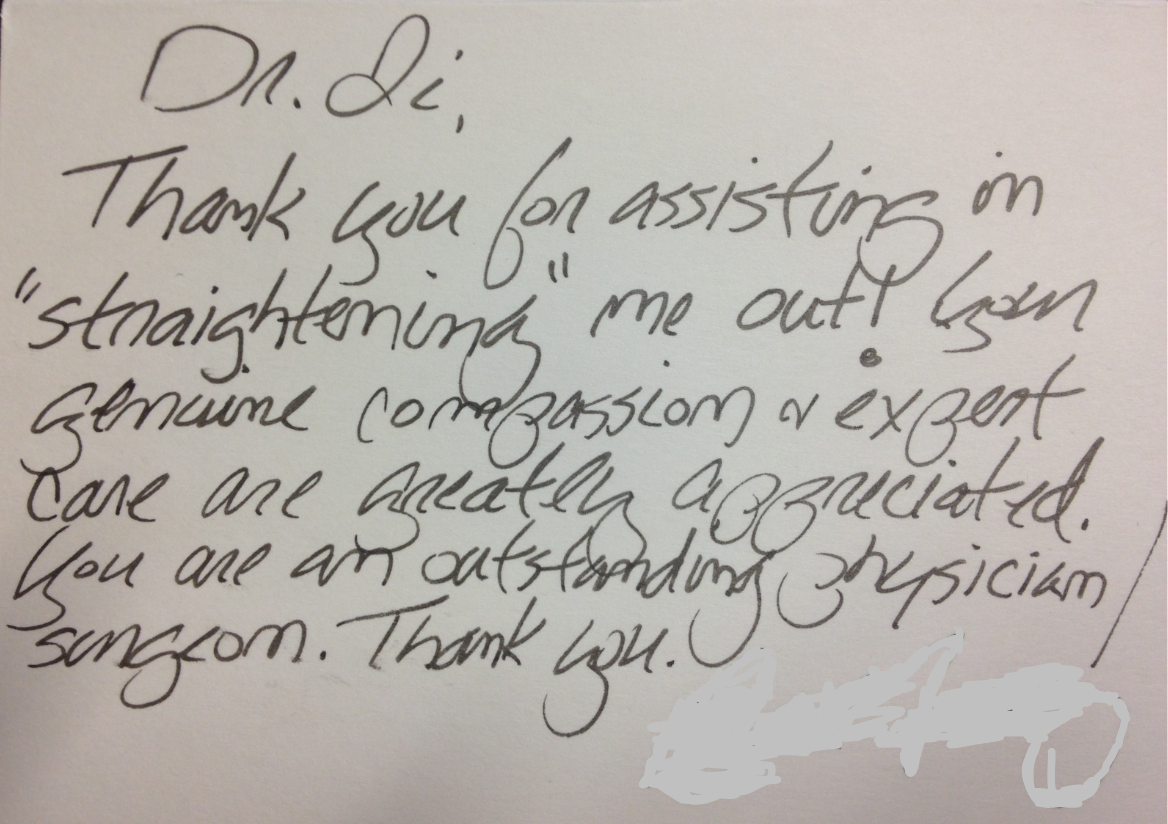 Dr. Di,
Thank you for assisting in
"straightening" me out! Your
genuine compassion & expert
care are greatly appreciated.
You are an outstanding physician/
surgeon. Thank you.